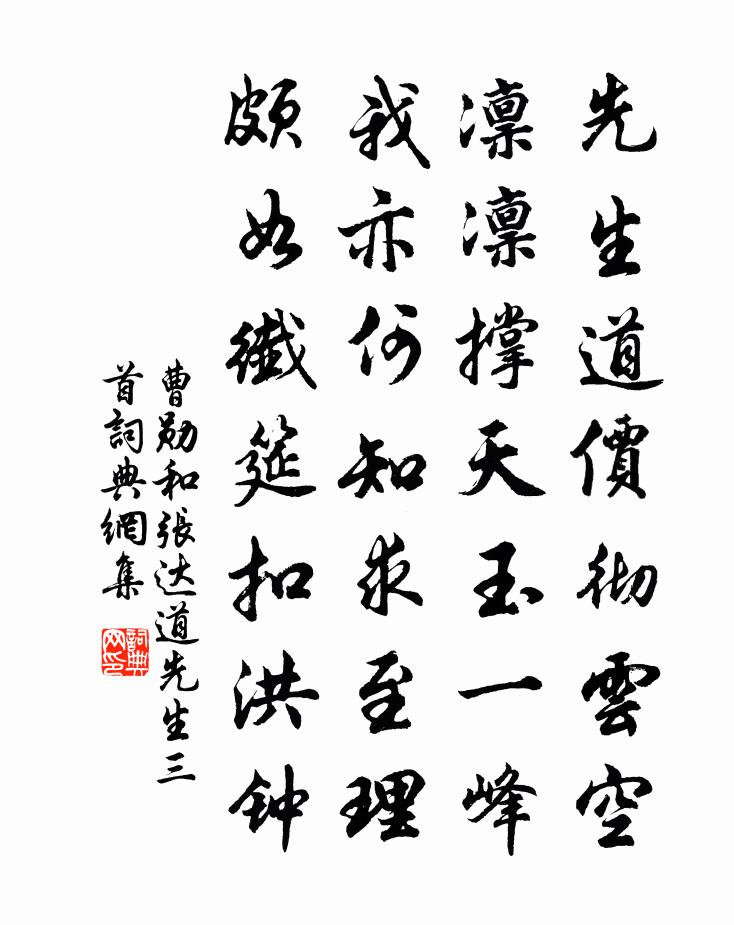 先生道價彻雲空
凛凛撑天玉一峰
我亦何知求至理
颇如纖筳扣洪钟
曹勋和張达道先生三
首詞典網集
詞典网印